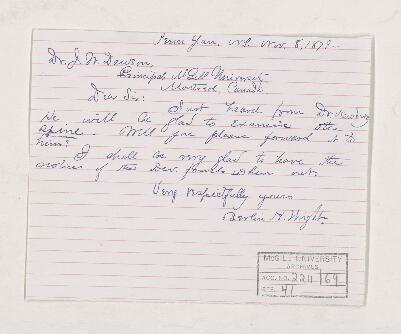 Penn Yan, N.Y. Nov. 8, 1879.
Dr. J. W. Dawson,
Principal McGill University
Montreal Canada.
Dear Sir:
Just heard from Dr. Newberry
He will be glad to examine the
spine. Will you please forward it to
him?
I shall be very glad to have the
notice of the Dev. fossils when out.
Very respectfully yours
Berlin H. Wright.
McGILL UNIVERSITY
ARCHIVES
ACC. NO. 2211/69
REF. 41